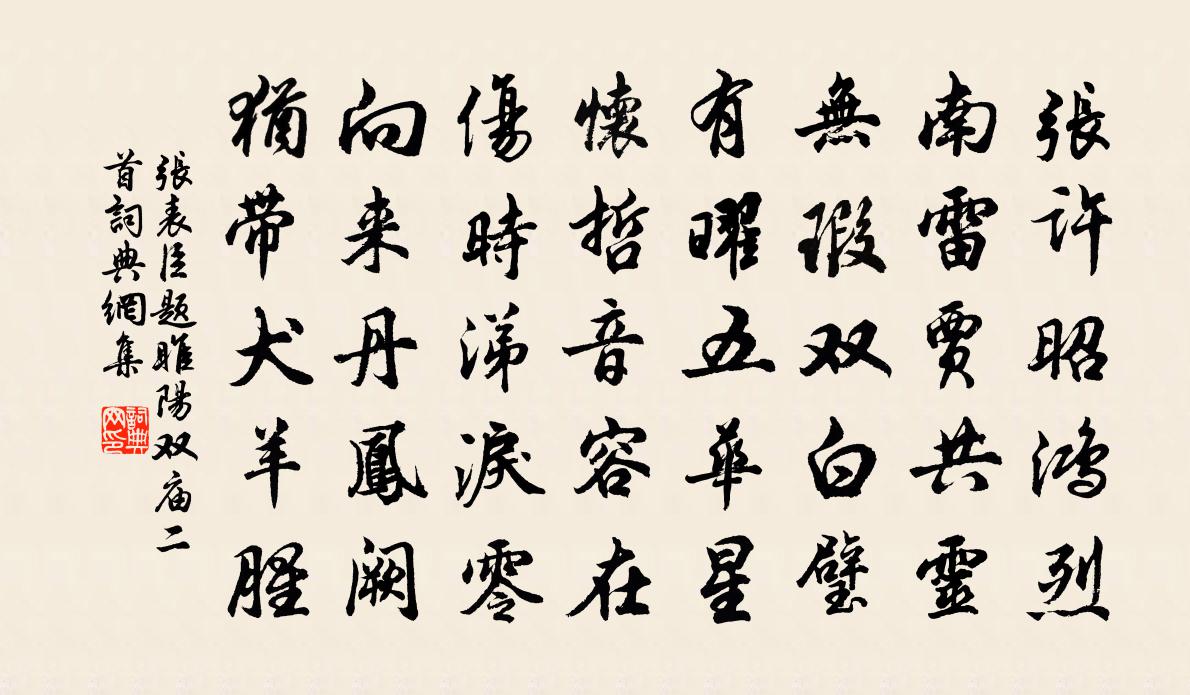 張許昭鸿烈
南雷賈共靈
無瑕双白璧
有曜五華星
懷哲音容在
傷時涕淚零
向来丹鳳闕
猶带犬羊腥
張表臣題睢陽双庙二
首詞典網集
詞典
网印